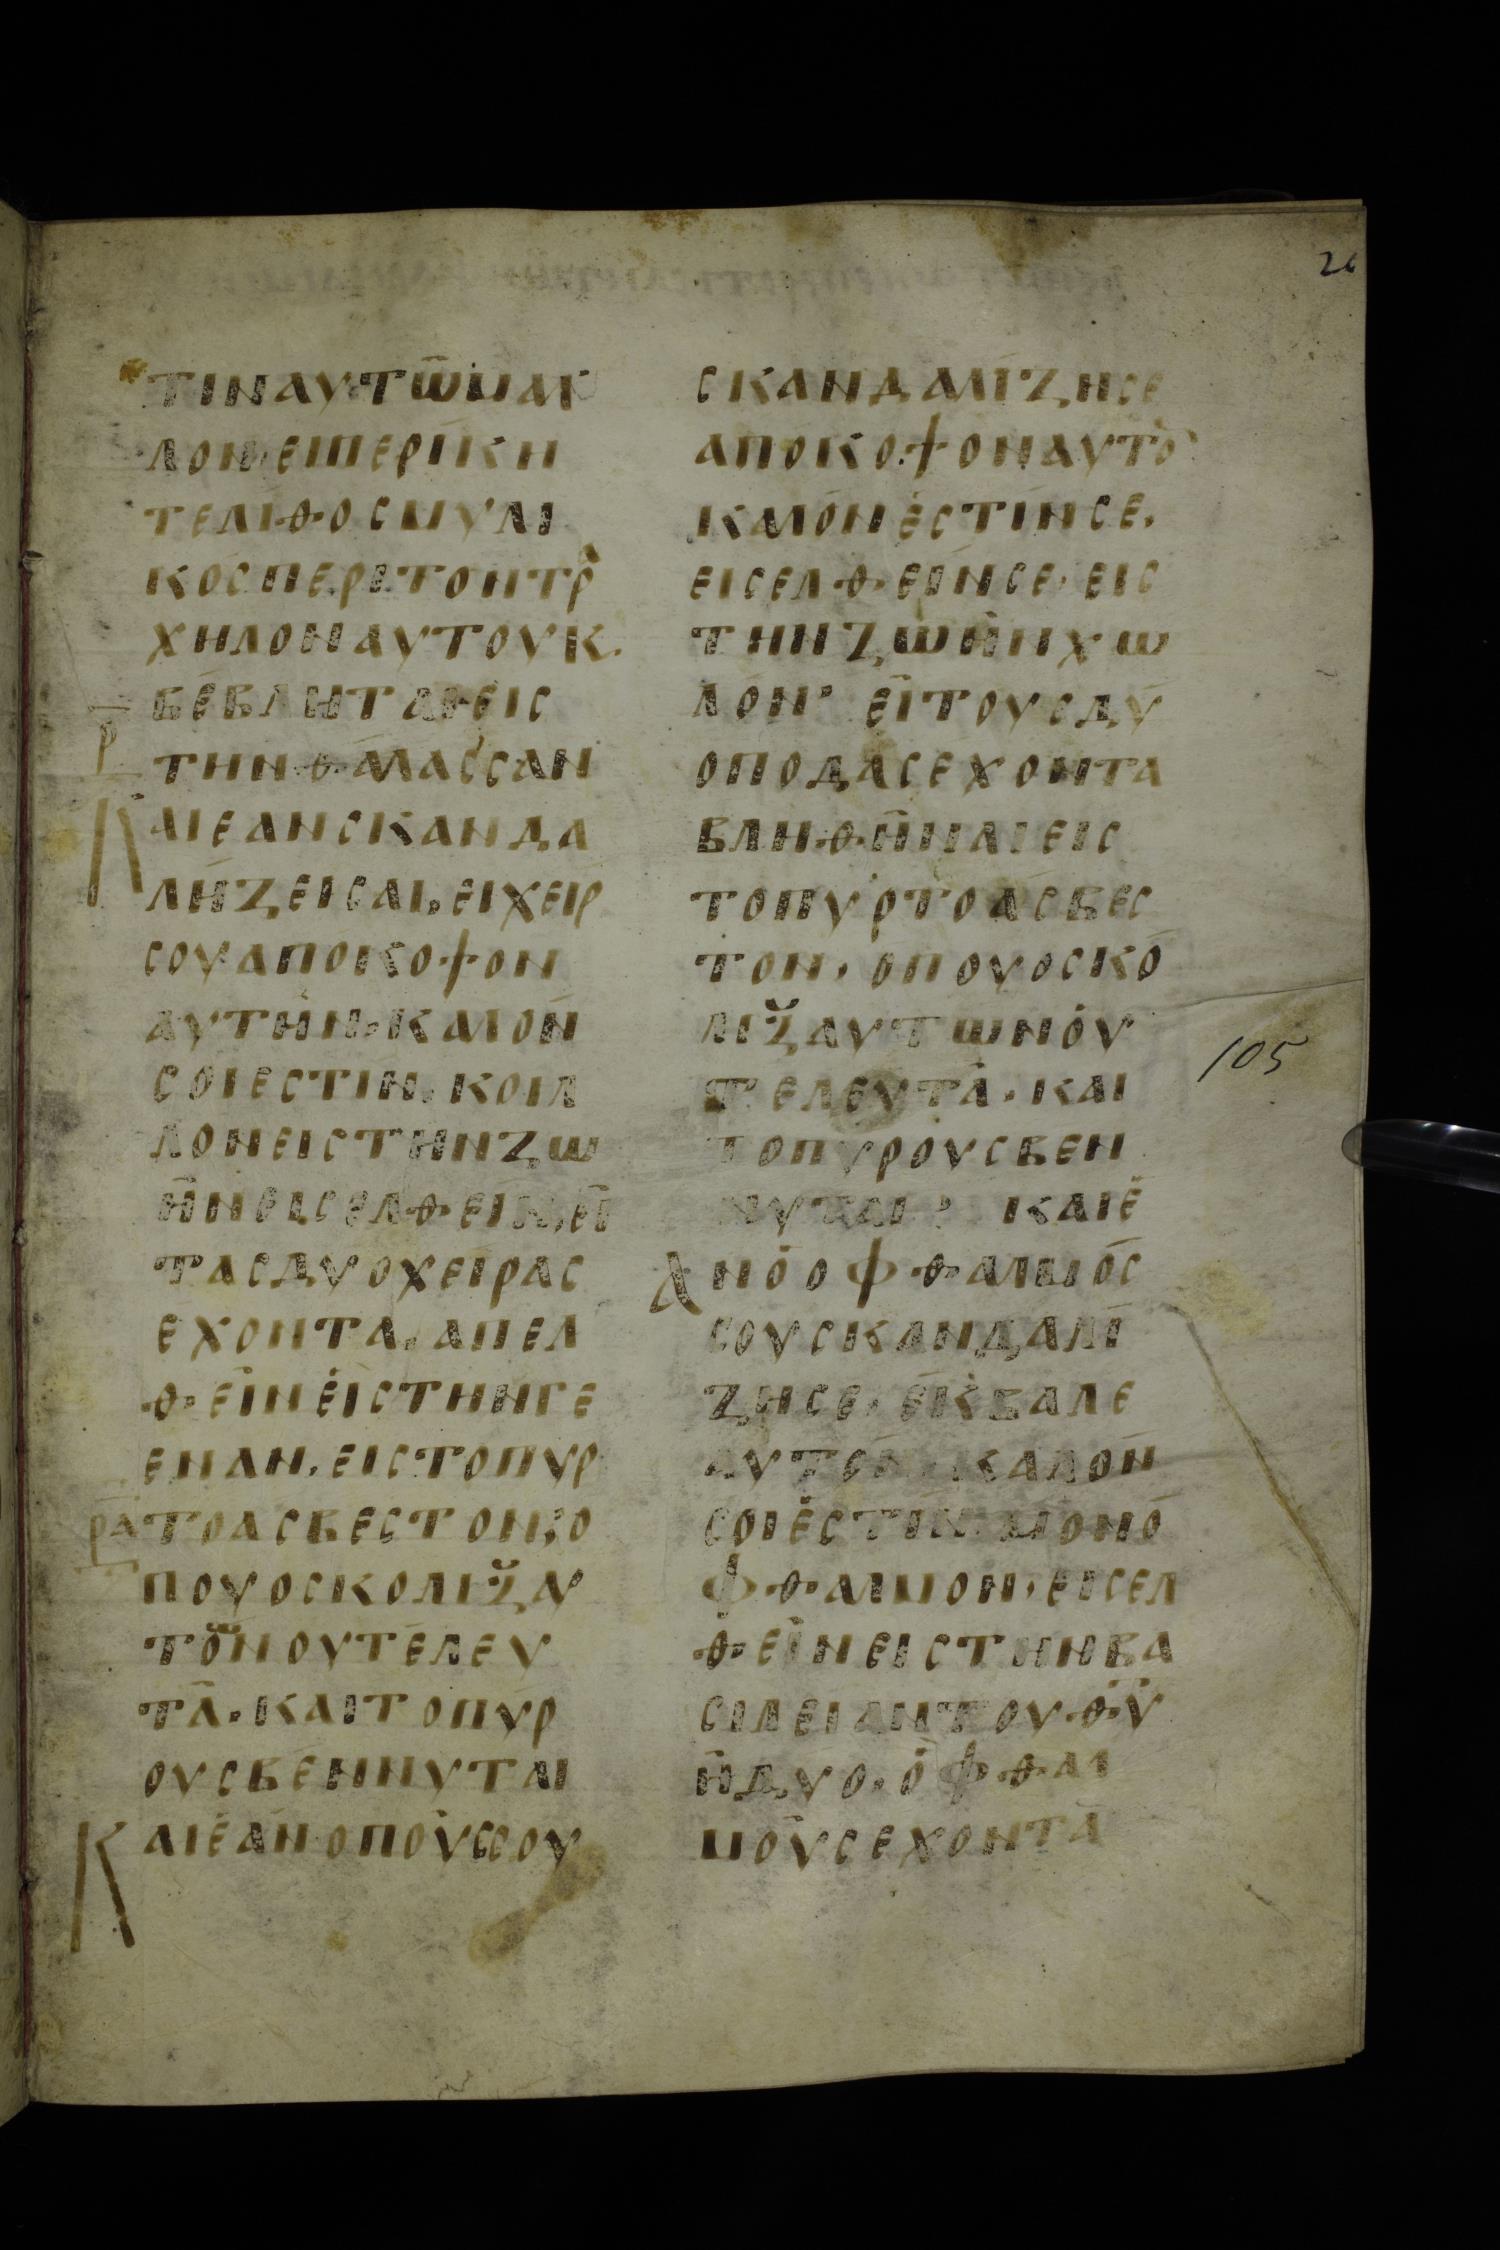 26
ΤΙΝΑΥΤΩΜΑΛ
ΛΟΝ,ΕΙΠΕΡΙΚΗ
ΤΕΛΙΘΟΣΜΥΛΙ
ΚΟΣΠΕΡΙΤΟΝΤΡΑ
ΧΗΛΟΝΑΥΤΟΥΚ,
ΒΕΒΛΗΤΑΙ·ΕΙΣ
Ρ
ΤΗΝΘΑΛΑΣΣΑΝ
ΚΑΙΕΑΝΣΚΑΝΔΑ
ΛΗΖΕΙΣΑΙ,ΕΙΧΕΙΡ
ΣΟΥΑΠΟΚΟΨΟΝ
ΑΥΤΗΝ,ΚΑΛΟΝ
ΣΟΙΕΣΤΙΝ,ΚΟΙΛ
ΛΟΝΕΙΣΤΗΝΖΩ
ΗΝΕΙΣΕΛΘΕΙΝ,ΕΙ
ΤΑΣΔΥΟΧΕΙΡΑΣ
ΕΧΟΝΤΑ,ΑΠΕΛ
ΘΕΙΝΕΙΣΤΗΝΓΕ
ΕΝΑΝ,ΕΙΣΤΟΠΥΡ
ΡΑ ΤΟΑΣΒΕΣΤΟΝ,Ο
ΠΟΥΟΣΚΟΛΙΖΑΥ
ΤΩΝΟΥΤΕΛΕΥ
ΤΑ·ΚΑΙΤΟΠΥΡ
ΟΥΣΒΕΝΝΥΤΑΙ
ΚΑΙΕΑΝΟΠΟΥΣΣΟΥ
ΣΚΑΝΔΑΛΙΖΗΣΕ
ΑΠΟΚΟΨΟΝΑΥΤΟ
ΚΑΛΟΝΕΣΤΙΝΣΕ,
ΕΙΣΕΛΘΕΙΝΣΕ,ΕΙΣ
ΤΗΝΖΩΗΝΧΩ
ΛΟΝ, ΕΙΤΟΥΣΔΥ
ΟΠΟΔΑΣΕΧΟΝΤΑ
ΒΛΗΘΗΝΑΙΕΙΣ
ΤΟΠΥΡΤΟΑΣΒΕΣ
ΤΟΝ,ΟΠΟΥΟΣΚΟ
ΛΙΖΑΥΤΩΝΟΥ
ΤΕΛΕΥΤΑ·ΚΑΙ
ΤΟΠΥΡΟΥΣΒΕΝ
ΝΥΤΑΙ, ΚΑΙΕ
ΑΝΟΟΦΘΑΛΜΟΣ
ΣΟΥΣΚΑΝΔΑΛΙ
ΖΗΣΕ,ΕΚΒΑΛΕ
ΑΥΤΟΝ,ΚΑΛΟΝ
ΣΟΙΕΣΤΙΝΜΟΝΟ
ΦΘΑΛΜΟΝ,ΕΙΣΕΛ
ΘΕΙΝΕΙΣΤΗΝΒΑ
ΣΙΛΕΙΑΝΤΟΥΘΥ
ΗΔΥΟ,ΟΦΘΑΛ
ΜΟΥΣΕΧΟΝΤΑ
105